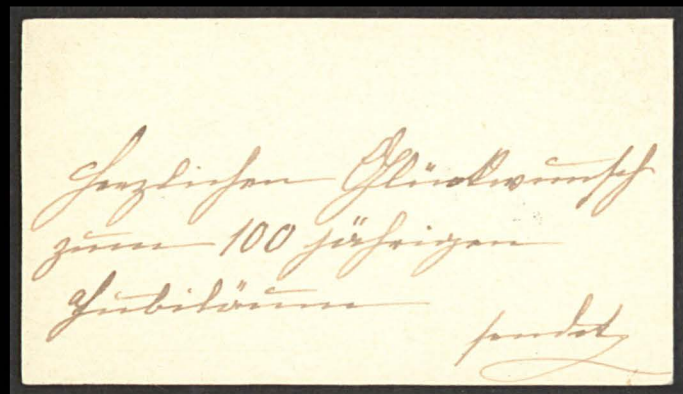 Herzlichen Glückwunsch
zum 100 jährigen
Jubiläum
sendet